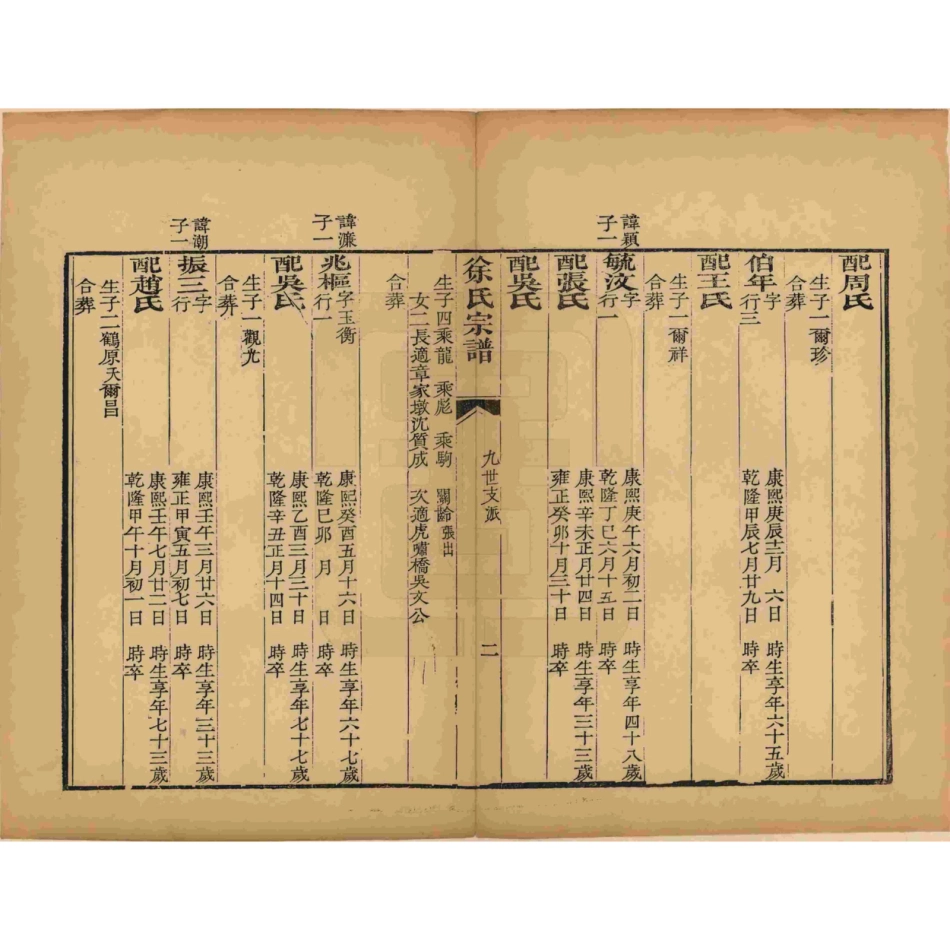 配周氏
生子一爾珍
合葬
伯年字
行三
康熙庚辰十二月 六日 時生享年六十五歲
乾隆甲辰七月廿九日 時卒
配王氏
生子一爾祥
合葬
諱穎
子一
毓汶字
行一
康熙庚午六月初二日 時生享年四十八歲
乾隆丁巳六月十五日 時卒
配張氏
康熙辛未正月廿四日 時生享年三十三歲
雍正癸卯十月三十日 時卒
配吳氏
徐氏宗譜
九世支派
二
生子四乘龍 乘彪 乘駒 關齡張出
女二長適章家墩沈質成 次適虎嘯橋吳文公
合葬
諱濂
子一
兆樞字玉衡
行一
康熙癸酉五月十六日 時生享年六十七歲
乾隆己卯 月 日 時卒
配吳氏
康熙乙酉三月三十日 時生享年七十七歲
乾隆辛丑正月十四日 時卒
生子一觀光
合葬
諱潮
子一
振三字
行一
康熙壬午三月廿六日 時生享年三十三歲
雍正甲寅五月初七日 時卒
配趙氏
康熙壬午七月廿二日 時生享年七十三歲
乾隆甲午十月初一日 時卒
生子二鶴原夭爾昌
合葬